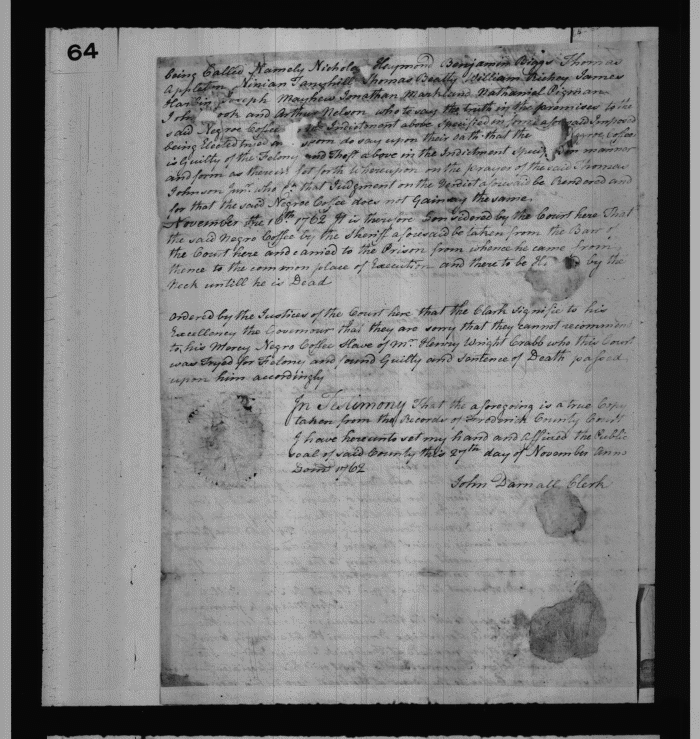 64
being Called Namely Nichola Haymond Benjamin Biggs Thomas
Appleton Ninian Tanyhill Thomas Beatty William Rickey James
Hardin Joseph Mayhew Jonathan Markland Nathaniel Pigman
John ook and Arthur Nelson who to say the truth in the premises to the
said Negroe Coffee Indictment above Specified in form aforesaid
being Elected tryed sworn do say upon their oath that the Negroe Coffee
is Guilty of the Felony and Theft above in the Indictment in manner
and form as therein set forth Whereupon on the prayer of the said Thomas
Johnson Junr. who that Judgment on the Verdict aforesaid be Rendered and
for that the said Negroe Coffee does not Gainsay the same.
November the 16th 1762 It is therefore Considered by the Court here That
the said Negro Coffee by the Sheriff aforesaid be taken from the Barr of
the Court here and carried to the Prison from whence he came from
thence to the common place of Execution and there to be by the
Neck untill he is Dead
Ordered by the Justices of the Court here that the Clark Signifie to his
Excellency the Governour that they are sorry that they cannot recommend
to his Mercy Negro Coffee Slave of Mr. Henry Wright Crabb who this Court
was Tryed for Felony and found Guilty and sentence of Death passed
upon him accordingly
In Testimony That the aforegoing is a true Copy
taken from the Records of Frederick County Court
I have hereunto set my hand and affixed the Public
seal of said County this 27th day of November anno
Domi 1762
John Darnall Clerk